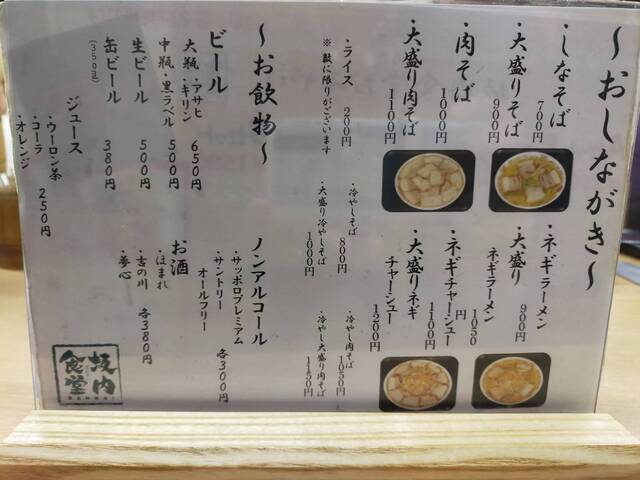 ～おしながき～
・しなそば
700円
・大盛りそば
900円
・肉そば
1000円
・大盛り肉そば
1100円
・ライス
200円
※数に限りがございます
・ネギラーメン
900円
・大盛り
ネギラーメン
1050円
・ネギチャーシュー
1100円
・大盛りネギ
チャーシュー
1200円
・冷やしそば
800円
・大盛り冷やしそば
1000円
・冷やし肉そば
1050円
・冷やし大盛り肉そば
1150円
～お飲物～
ビール
大瓶・アサヒ
・キリン
650円
中瓶・黒ラベル
500円
生ビール
500円
缶ビール
(350ml)
380円
ジュース
・ウーロン茶
・コーラ
・オレンジ
250円
ノンアルコール
・サッポロプレミアム
・サントリー
オールフリー
各300円
お酒
・ほまれ
・吉の川
・夢心
各380円
坂内
食堂
BANNAI